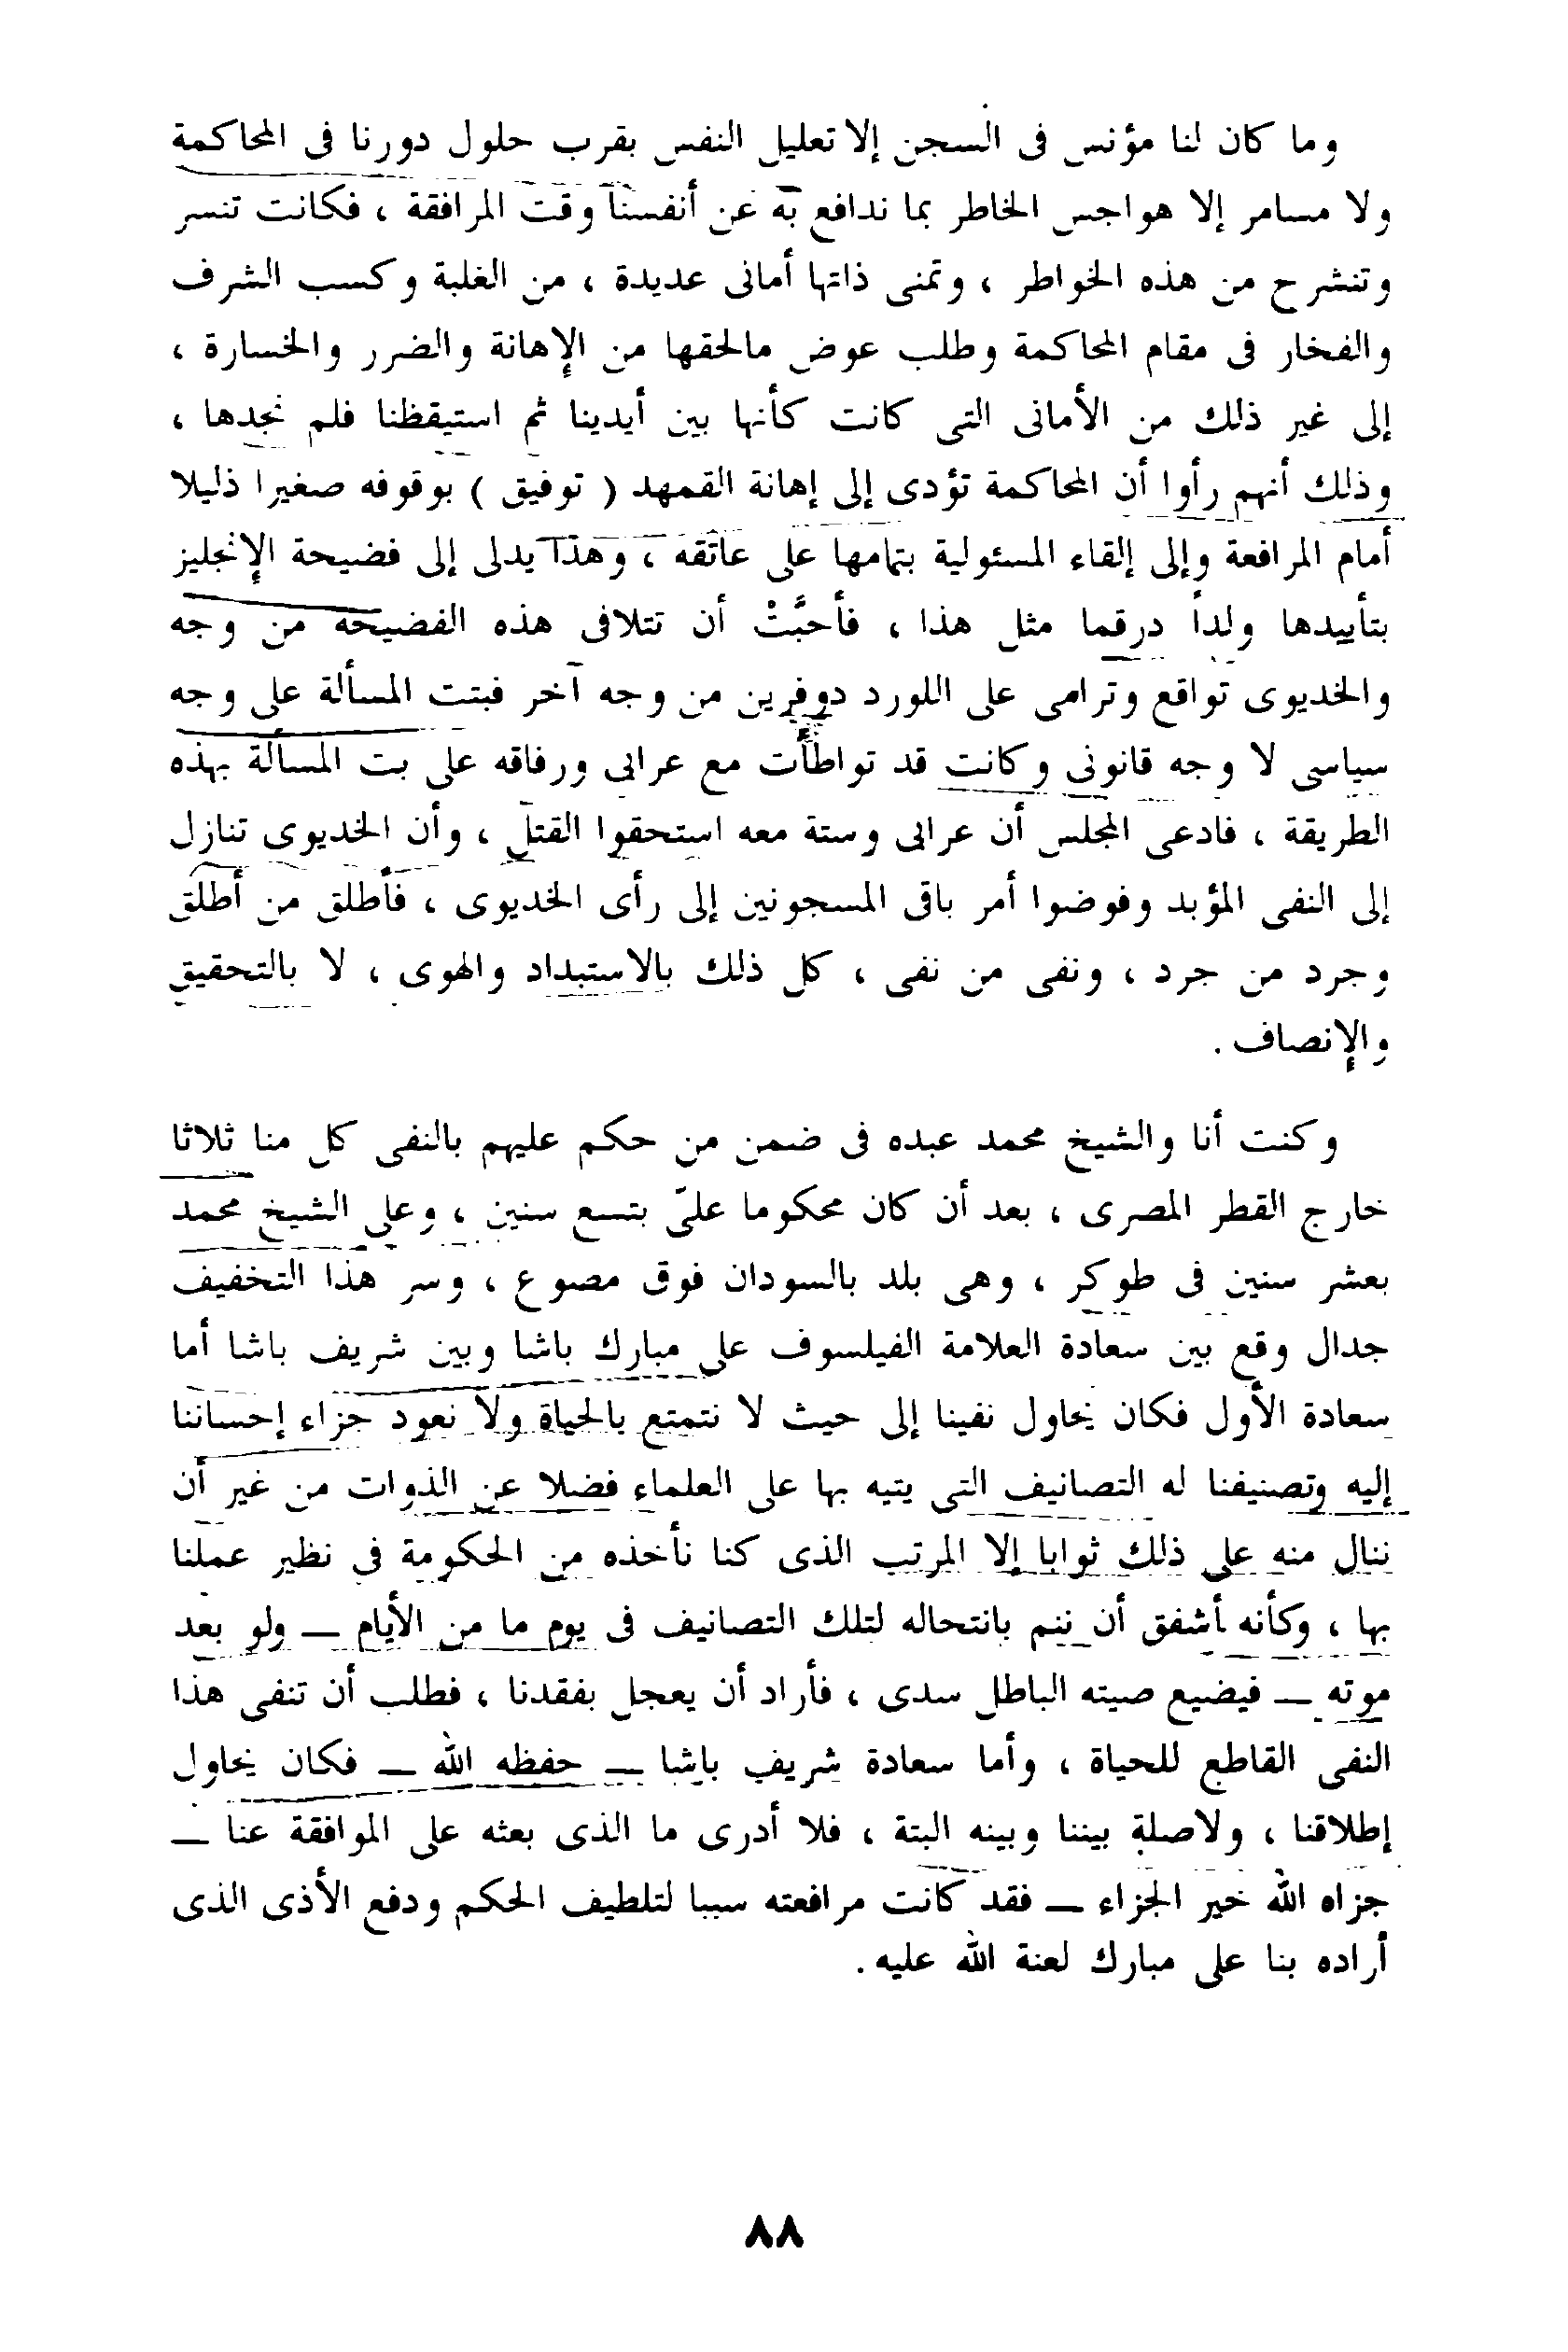 وما كان لنا مؤنس فى السجن إلا تعليل النفس بقرب حلول دورنا فى المحاكمة
ولا مسامر إلا هواجس الخاطر بما ندافع به عن أنفسنا وقت المرافقة ، فكانت تنسر
وتنشرح من هذه الخواطر ، وتمنى ذاتها أمانى عديدة ، من الغلبة وكسب الشرف
والفخار فى مقام المحاكمة وطلب عوض مالحقها من الإهانة والضرر والخسارة ،
إلى غير ذلك من الأمانى التى كانت كأنها بين أيدينا ثم استيقظنا فلم نجدها ،
وذلك أنهم رأوا أن المحاكمة تؤدى إلى إهانة القمهد ( توفيق ) بوقوفه صغيرا ذليلا
أمام المرافعة وإلى إلقاء المسئولية بتمامها على عاتقه ، وهذا يدلى إلى فضيحة الإنجليز
بتأييدها ولداً درقما مثل هذا ، فأحبَّتْ أن تتلافى هذه الفضيحة من وجه
والخديوى تواقع وترامى على اللورد دوفرين من وجه آخر فبتت المسألة على وجه
سياسى لا وجه قانونى وكانت قد تواطأت مع عرابى ورفاقه على بت المسألة بهذه
الطريقة ، فادعى المجلس أن عرابى وستة معه استحقوا القتل ، وأن الخديوى تنازل
إلى النفى المؤبد وفوضوا أمر باقى المسجونين إلى رأى الخديوى ، فأطلق من أطلق
وجرد من جرد ، ونفى من نفى ، كل ذلك بالاستبداد والهوى ، لا بالتحقيق
والإنصاف .
وكنت أنا والشيخ محمد عبده فى ضمن من حكم عليهم بالنفى كل منا ثلاثا
خارج القطر المصرى ، بعد أن كان محكوما علىّ بتسع سنين ، وعلى الشيخ محمد
بعشر سنين فى طوكر ، وهى بلد بالسودان فوق مصوع ، وسر هذا التخفيف
جدال وقع بين سعادة العلامة الفيلسوف على مبارك باشا وبين شريف باشا أما
سعادة الأول فكان يحاول نفينا إلى حيث لا نتمتع بالحياة ولا نعود جزاء إحساننا
إليه وتصنيفنا له التصانيف التى يتيه بها على العلماء فضلا عن الذوات من غير أن
ننال منه على ذلك ثوابا إلا المرتب الذى كنا نأخذه من الحكومة فى نظير عملنا
بها ، وكأنه أشفق أن ننم بانتحاله لتلك التصانيف فى يوم ما من الأيام — ولو بعد
موته — فيضيع صيته الباطل سدى ، فأراد أن يعجل بفقدنا ، فطلب أن تنفى هذا
النفى القاطع للحياة ، وأما سعادة شريف باشا — حفظه الله — فكان يحاول
إطلاقنا ، ولاصلة بيننا وبينه البتة ، فلا أدرى ما الذى بعثه على الموافقة عنا —
جزاه الله خير الجزاء — فقد كانت مرافعته سببا لتلطيف الحكم ودفع الأذى الذى
أراده بنا على مبارك لعنة الله عليه .
٨٨